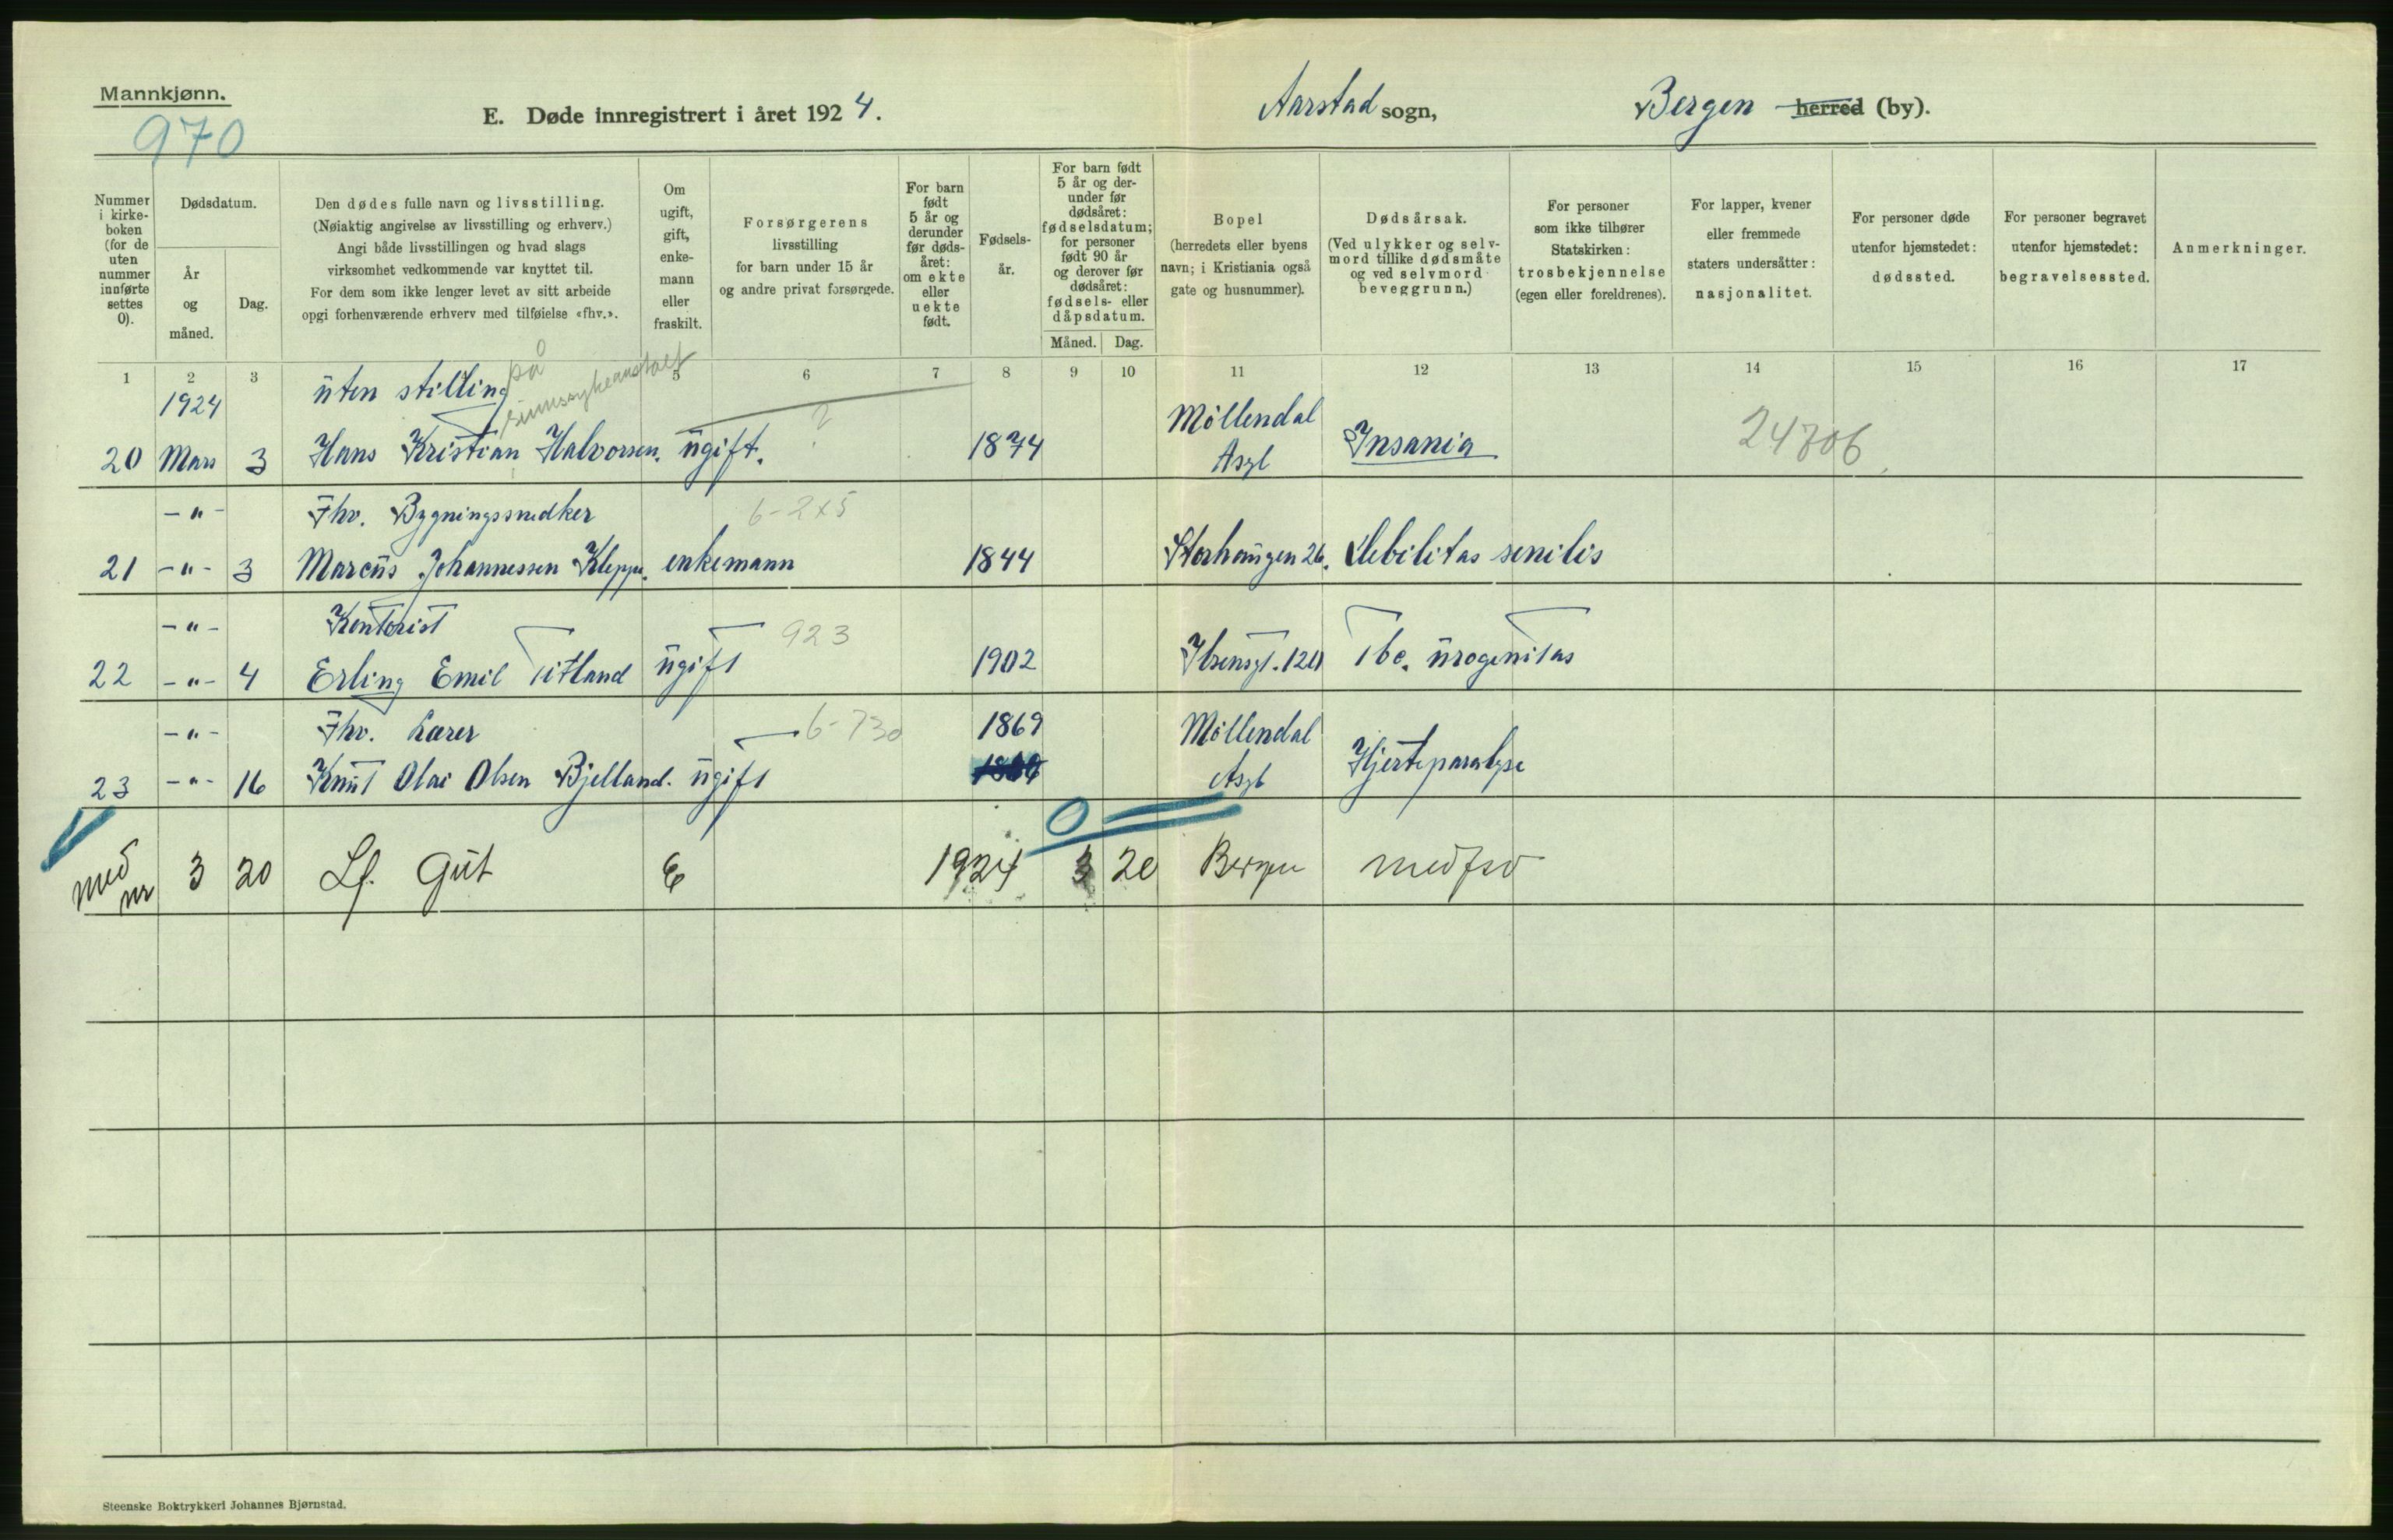 Mannkjønn.
970
E. Døde innregistrert i året 1924.
Aarstad sogn,
Bergen herred (by).
Nummer i kirke- boken (for de uten nummer innførte settes 0).
Dødsdatum.
År og måned.
Dag.
Den dødes fulle navn og livsstilling.
(Nøiaktig angivelse av livsstilling og erhverv.)
Angi både livsstillingen og hvad slags
virksomhet vedkommende var knyttet til.
For dem som ikke lenger levet av sitt arbeide
opgi forhenværende erhverv med tilføielse «fhv.».
Om ugift, gift, enke- mann eller fraskilt.
Forsørgerens
livsstilling
for barn under 15 år
og andre privat forsørgede.
For barn født 5 år og derunder før døds- året: om ekte eller uekte født.
Fødsels- år.
For barn født 5 år og der- under før dødsåret: fødselsdatum; for personer født 90 år og derover før dødsåret: fødsels- eller dåpsdatum.
Måned.
Dag.
Bopel
(herredets eller byens
navn; i Kristiania også
gate og husnummer).
Dødsårsak.
(Ved ulykker og selv-
mord tillike dødsmåte
og ved selvmord
beveggrunn.)
For personer
som ikke tilhører
Statskirken:
trosbekjennelse
(egen eller foreldrenes).
For lapper, kvener
eller fremmede
staters undersåtter:
nasjonalitet.
For personer døde
utenfor hjemstedet:
dødssted.
For personer begravet
utenfor hjemstedet:
begravelsessted.
Anmerkninger.
1 2 3 5 6 7 8 9 10 11 12 13 14 15 16 17
1924 uten stilling på sinnssykeanstalt Möllendal
20 Mars 3 Hans Kristian Halvorsen. ugift. ? 1874 Asyl Insania 24706
-"- Fhv. Bygningssnedker 6-2x5
21 -"- 3 Marcus Johannessen Kleppe. enkemann 1844 Storhaugen 26. Debilitas senilis
-"- Kontorist 923
22 -"- 4 Erling Emil Titland ugift 1902 Ibsensgt. 120 Tbc. urogenitas
-"- Fhv. Lærer 6-730 1869 Möllendal
23 -"- 16 Knut Olai Olsen Bjelland. ugift Asyl Hjerteparalyse
0
med nr 3 20 Lf. Gut E 1924 3 20 Bergen medfsv
Steenske Boktrykkeri Johannes Bjørnstad.